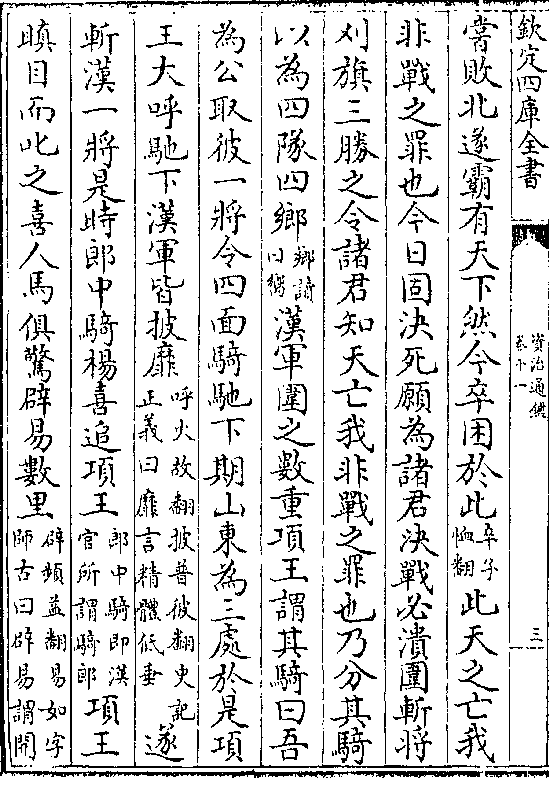 欽定四庫全書
資治通鑑
卷十一
三
嘗敗北遂霸有天下然今卒困於此卒子恤翻此天之亡我
非戰之罪也今日固決死願為諸君決戰必潰圍斬將
刈旗三勝之令諸君知天亡我非戰之罪也乃分其騎
以為四隊四鄉鄉讀曰嚮漢軍圍之數重項王謂其騎曰吾
為公取彼一將令四面騎馳下期山東為三處於是項
王大呼馳下漢軍皆披靡呼火故翻披普彼翻史記正義曰靡言精體低垂遂
斬漢一將是時郎中騎楊喜追項王郎中騎即漢官所謂騎郎項王
瞋目而叱之喜人馬俱驚辟易數里辟頻益翻易如字師古曰辟易謂開